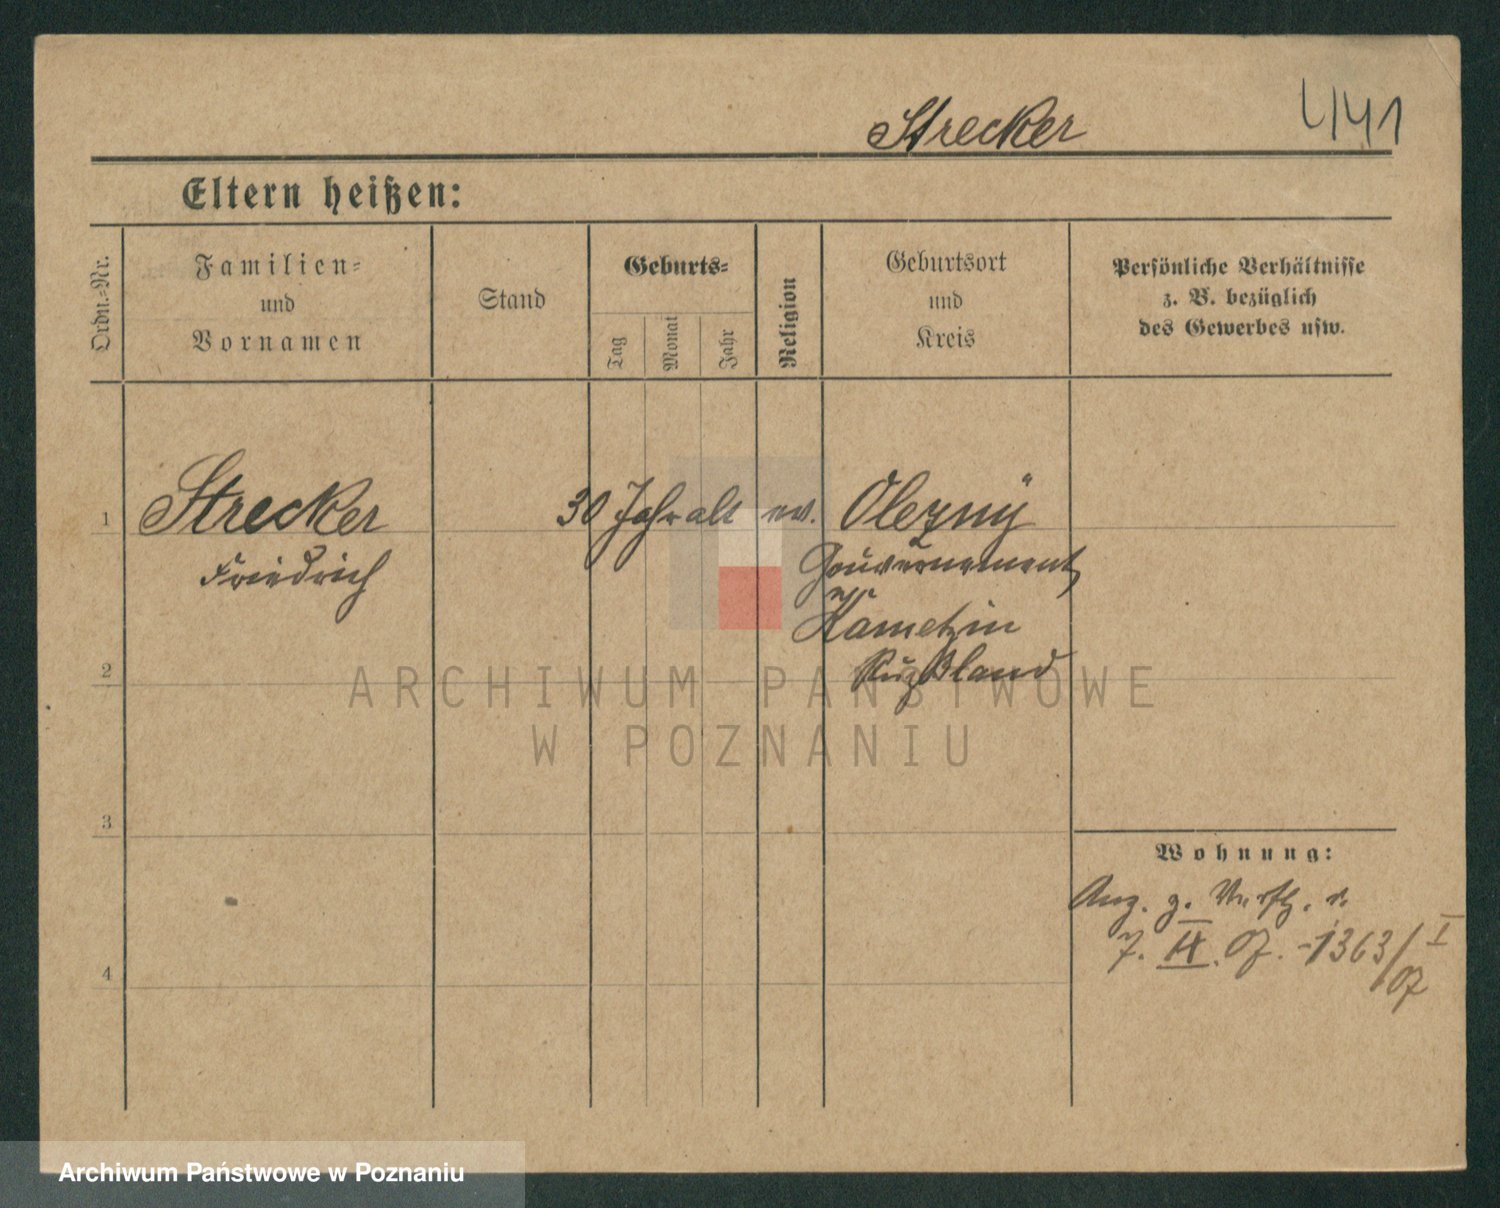 Strecker
441
Eltern heißen:
Ordn.-Nr.
Familien-
und
Vornamen
Stand
Geburts-
Tag
Monat
Jahr
Religion
Geburtsort
und
Kreis
Persönliche Verhältnisse
z. B. bezüglich
des Gewerbes usw.
1
Strecker
30 Jahr alt
ev.
Friedrich
Gouvernement
Rußland
2
3
4
Wohnung:
7. 07. -1363/I
07
ARCHIWUM PAŃSTWOWE
W POZNANIU
Archiwum Państwowe w Poznaniu